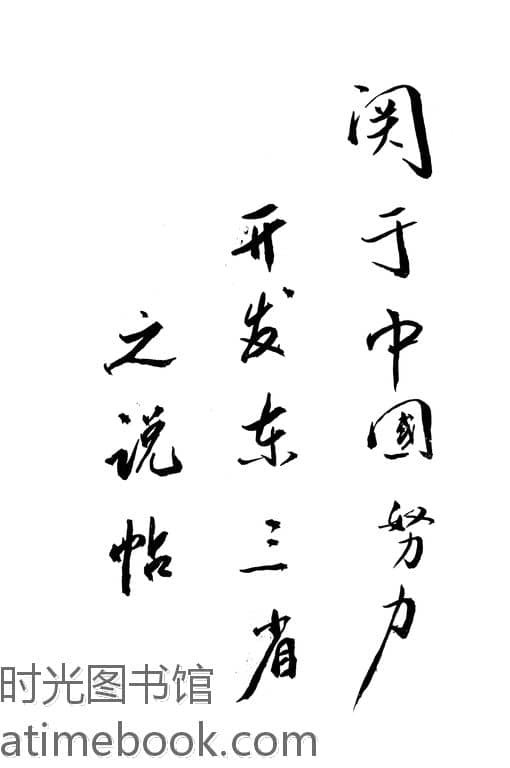 关于中國努力
开发东三省
之说帖
时光图书馆
atimebook.com